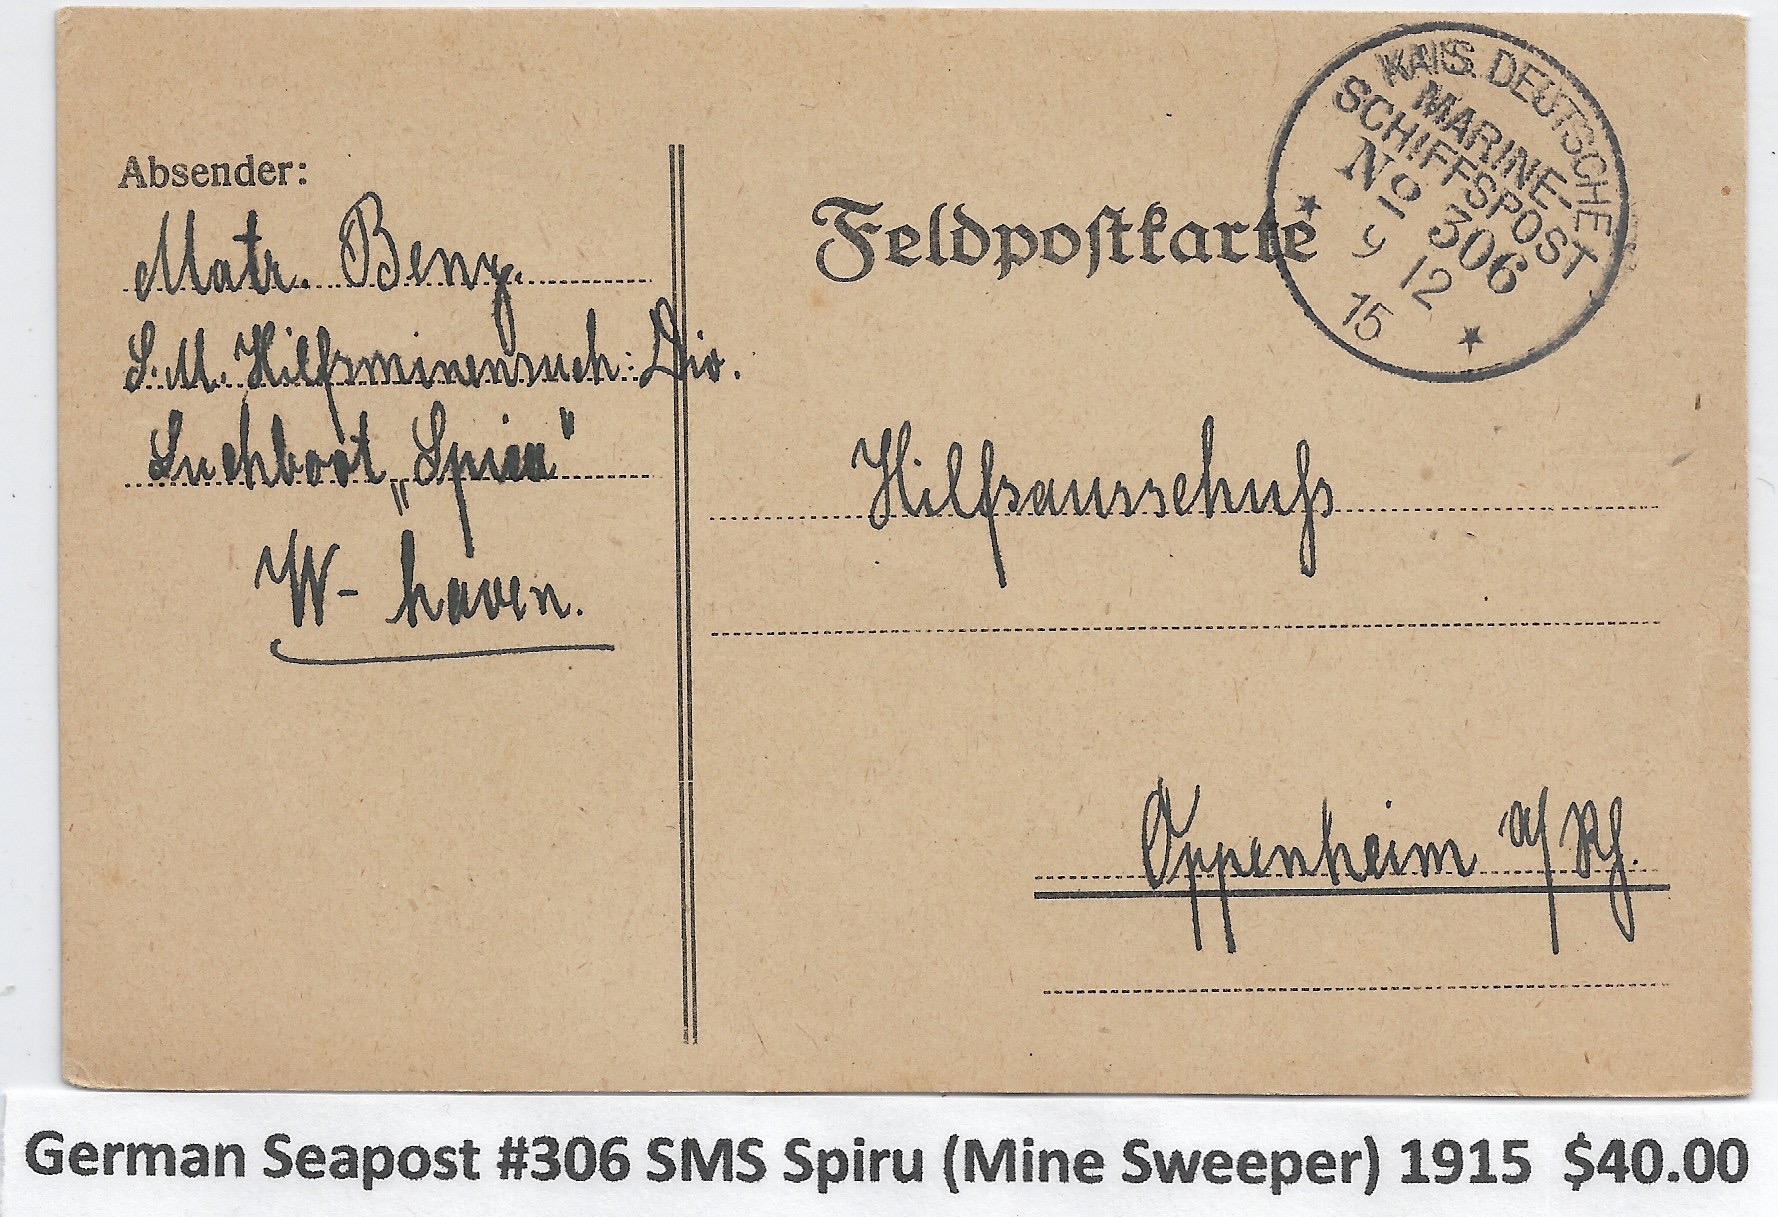 Absender:
Matr. Benz.
S.M. Hilfsminensuch: Div.
Suchboot „Spiru"
W-haven.
Feldpostkarte
KAIS. DEUTSCHE
MARINE-
SCHIFFSPOST
No 306
9 12
15
Hilfsausschuß
Oppenheim a/Rh.
German Seapost #306 SMS Spiru (Mine Sweeper) 1915 $40.00